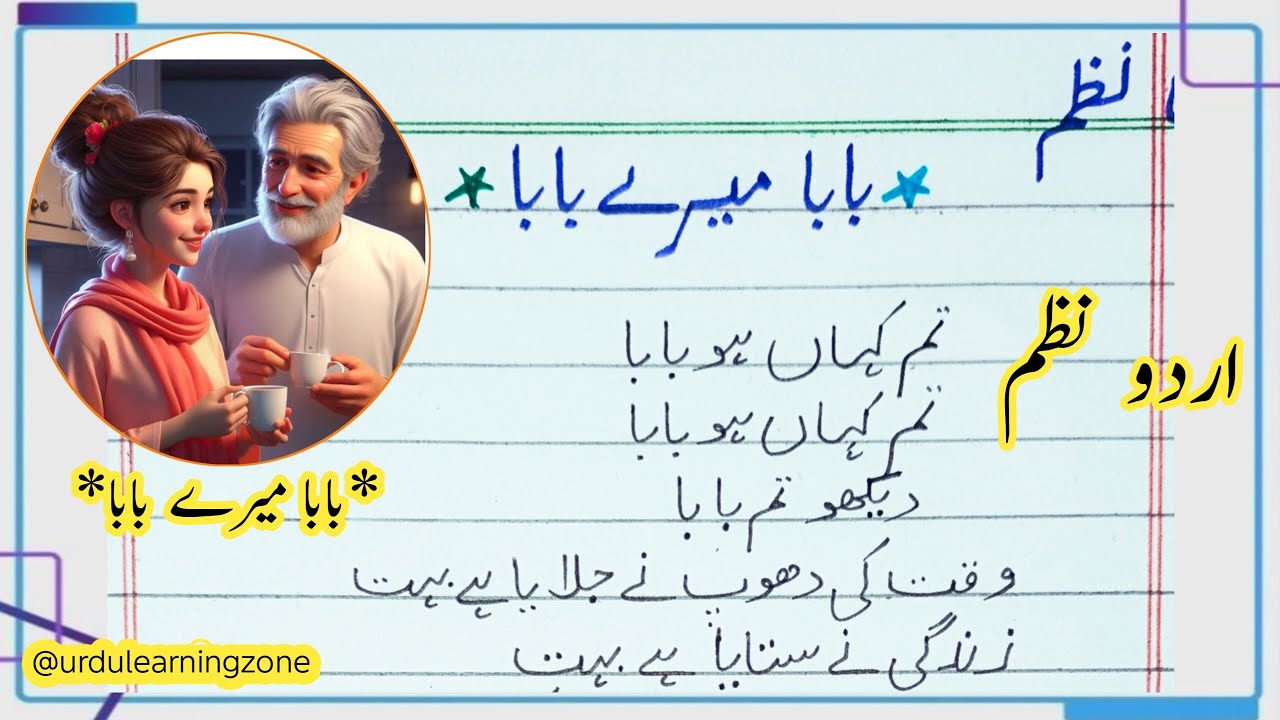 نظم
بابا میرے بابا
تم کہاں ہو بابا
تم کہاں ہو بابا
دیکھو تم بابا
وقت کی دھوپ نے جلایا ہے بہت
زندگی نے ستایا ہے بہت
اردو نظم
*بابا میرے بابا*
@urdulearningzone